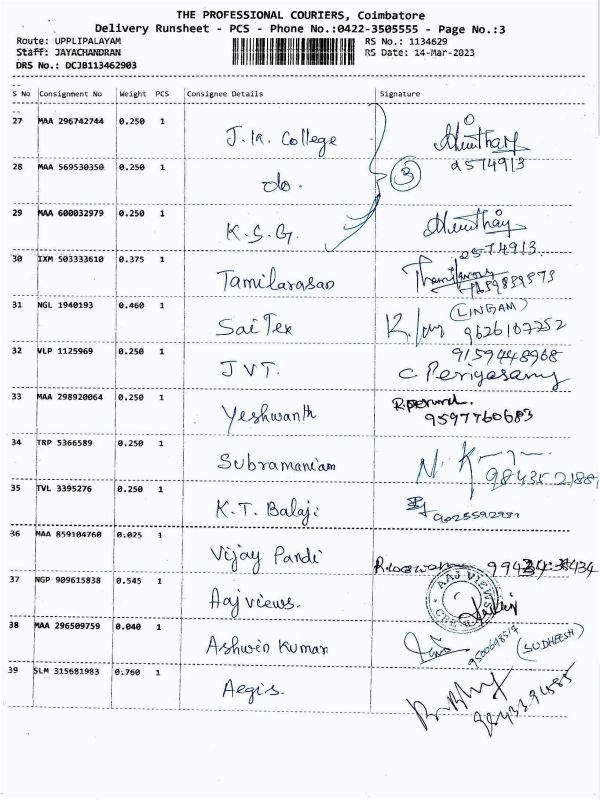 THE PROFESSIONAL COURIERS, Coimbatore
Delivery Runsheet - PCS - Phone No.:0422-3505555 - Page No.:3
Route: UPPLIPALAYAM RS No.: 1134629
Staff: JAYACHANDRAN RS Date: 14-Mar-2023
DRS No.: DCJB113462903
S No Consignment No Weight PCS Consignee Details Signature
27 MAA 296742744 0.250 1 J.K. College
2574913
28 MAA 569530350 0.250 1 do. 3
29 MAA 600032979 0.250 1 K.S.G.
2574913
30 IXM 503333610 0.375 1 Tamilarasan
31 NGL 1940193 0.460 1 Sai Tex (LINGAM)
9626167252
32 VLP 1125969 0.250 1 JVT. 9159448968
C Periyasamy
33 MAA 298920064 0.250 1 Yeshwanth
9597760683
34 TRP 5366589 0.250 1 Subramaniam
35 TVL 3395276 0.250 1 K.T. Balaji
36 MAA 859104760 0.025 1 Vijay Pandi
37 NGP 909615838 0.545 1 Aaj views. AAJ VIEWS
38 MAA 296509759 0.040 1 Ashwin Kumar (SUDHEESH)
39 SLM 315681983 0.760 1 Aegis.